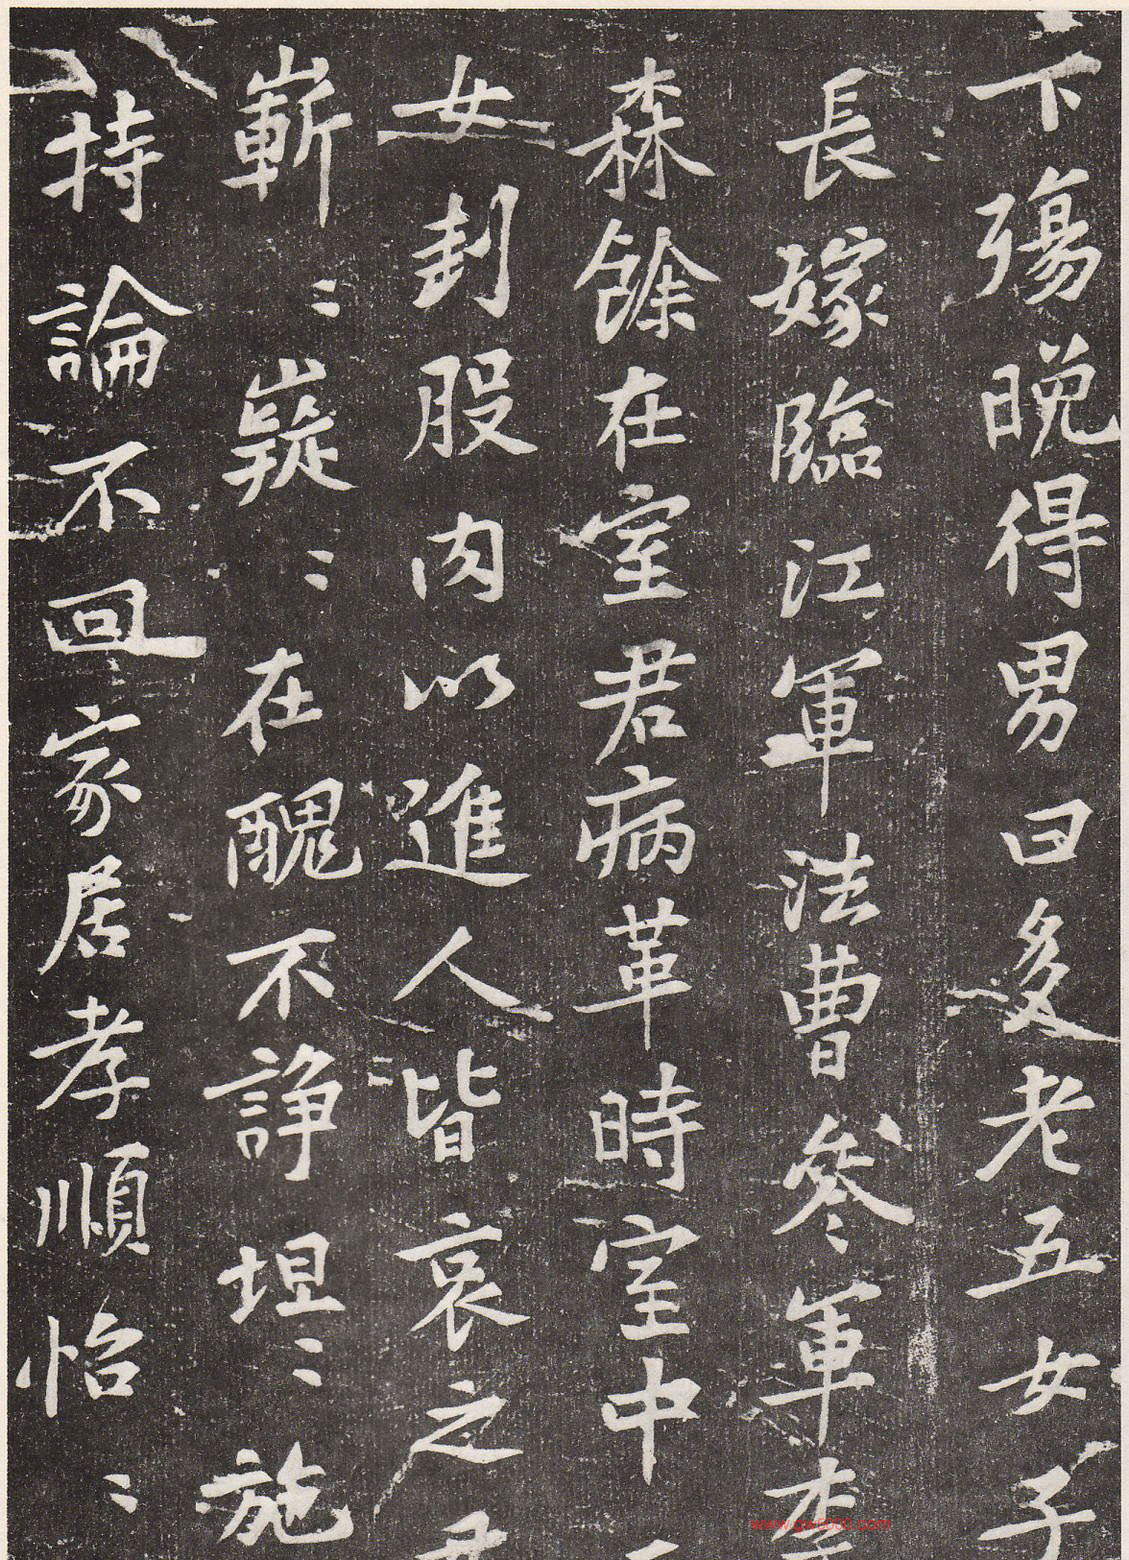 下殤晚得男曰多老五女子
長嫁臨江軍法曹參軍李
森餘在室君病革時室中
女刲股肉以進人皆哀之君
嶄〻嶷〻在醜不諍坦〻施
持論不回家居孝順怡〻